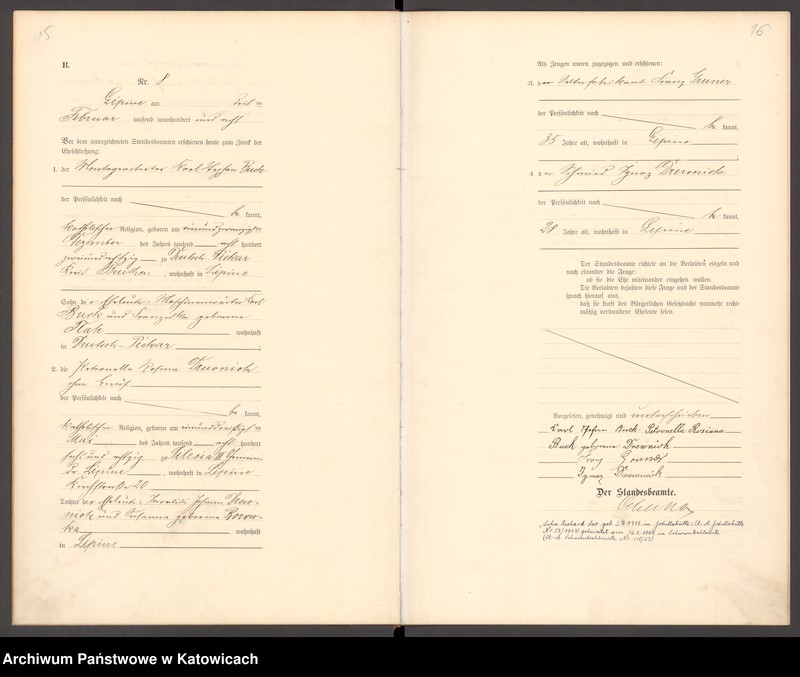 15
B.
Nr. 8
Lipine am drei ten
Februar tausend neunhundert und acht
Vor dem unterzeichneten Standesbeamten erschienen heute zum Zweck der
Eheschließung:
1. der Montagearbeiter Karl Stephan Buck
der Persönlichkeit nach
be kannt,
katholischer Religion, geboren am einundzwanzigsten
Dezember des Jahres tausend acht hundert
zweiundachtzig zu Deutsch Piekar
Kreis Beuthen, wohnhaft in Lipine
Sohn der Eheleute: Maschinenwärter Karl
Buck und Franziska geborene
wohnhaft
in Deutsch-Piekar
2. die Petronella Rosina Drewniok
ohne Beruf
der Persönlichkeit nach
be kannt,
katholischer Religion, geboren am einunddreißigsten
Mai des Jahres tausend acht hundert
sechsundachtzig zu Silesia
Lipine, wohnhaft in Lipine
Kirchstraße 20
Tochter der Eheleute: Invalide Johann Drew-
niok und Susanna geborene
wohnhaft
in Lipine
16
Als Zeugen waren zugezogen und erschienen:
3. der Franz Gruner
der Persönlichkeit nach
be kannt,
35 Jahre alt, wohnhaft in Lipine
4. der Schmied Ignaz Drewniok
der Persönlichkeit nach
be kannt,
28 Jahre alt, wohnhaft in Lipine
Der Standesbeamte richtete an die Verlobten einzeln und
nach einander die Frage:
ob sie die Ehe miteinander eingehen wollen.
Die Verlobten bejahten diese Frage und der Standesbeamte
sprach hierauf aus,
daß sie kraft des Bürgerlichen Gesetzbuchs nunmehr recht-
mäßig verbundene Eheleute seien.
Vorgelesen, genehmigt und unterschrieben
Karl Stefan Buck. Petronella Rosiana
Buck geborene Drewniok
Franz Gruner
Ignaz Drewniok
Der Standesbeamte.
Sohn Richard geb. in
geheiratet am in Schwientochlowitz
Archiwum Państwowe w Katowicach